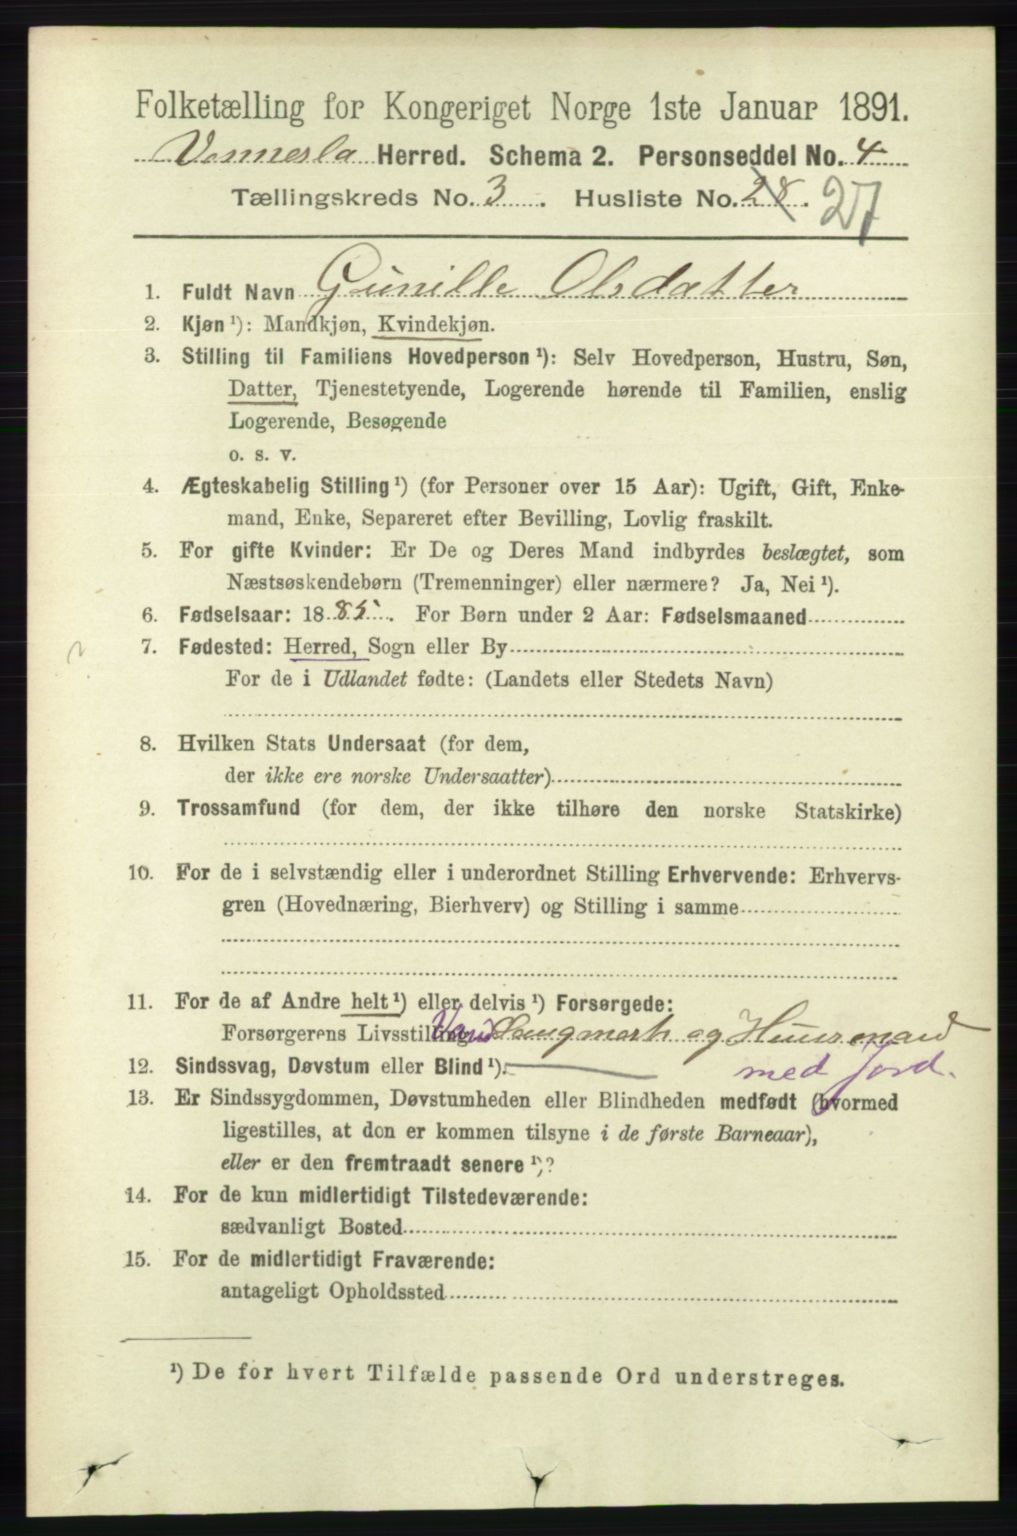 Folketælling for Kongeriget Norge 1ste Januar 1891.
Vennesla Herred. Schema 2. Personseddel No. 4
Tællingskreds No. 3. Husliste No. 28. 27
1. Fuldt Navn Gunille Olsdatter
2. Kjøn ¹): Mandkjøn, Kvindekjøn.
3. Stilling til Familiens Hovedperson ¹): Selv Hovedperson, Hustru, Søn,
Datter, Tjenestetyende, Logerende hørende til Familien, enslig
Logerende, Besøgende
o. s. v.
4. Ægteskabelig Stilling ¹) (for Personer over 15 Aar): Ugift, Gift, Enke-
mand, Enke, Separeret efter Bevilling, Lovlig fraskilt.
5. For gifte Kvinder: Er De og Deres Mand indbyrdes beslægtet, som
Næstsøskendebørn (Tremenninger) eller nærmere? Ja, Nei ¹).
6. Fødselsaar: 1885. For Børn under 2 Aar: Fødselsmaaned
7. Fødested: Herred, Sogn eller By
For de i Udlandet fødte: (Landets eller Stedets Navn)
8. Hvilken Stats Undersaat (for dem,
der ikke ere norske Undersaatter)
9. Trossamfund (for dem, der ikke tilhøre den norske Statskirke)
10. For de i selvstændig eller i underordnet Stilling Erhvervende: Erhvervs-
gren (Hovednæring, Bierhverv) og Stilling i samme
11. For de af Andre helt ¹) eller delvis ¹) Forsørgede:
Forsørgerens Livsstilling og Huusmand
med Jord.
12. Sindssvag, Døvstum eller Blind ¹).
13. Er Sindssygdommen, Døvstumheden eller Blindheden medfødt (hvormed
ligestilles, at den er kommen tilsyne i de første Barneaar),
eller er den fremtraadt senere ¹)?
14. For de kun midlertidigt Tilstedeværende:
sædvanligt Bosted
15. For de midlertidigt Fraværende:
antageligt Opholdssted
¹) De for hvert Tilfælde passende Ord understreges.